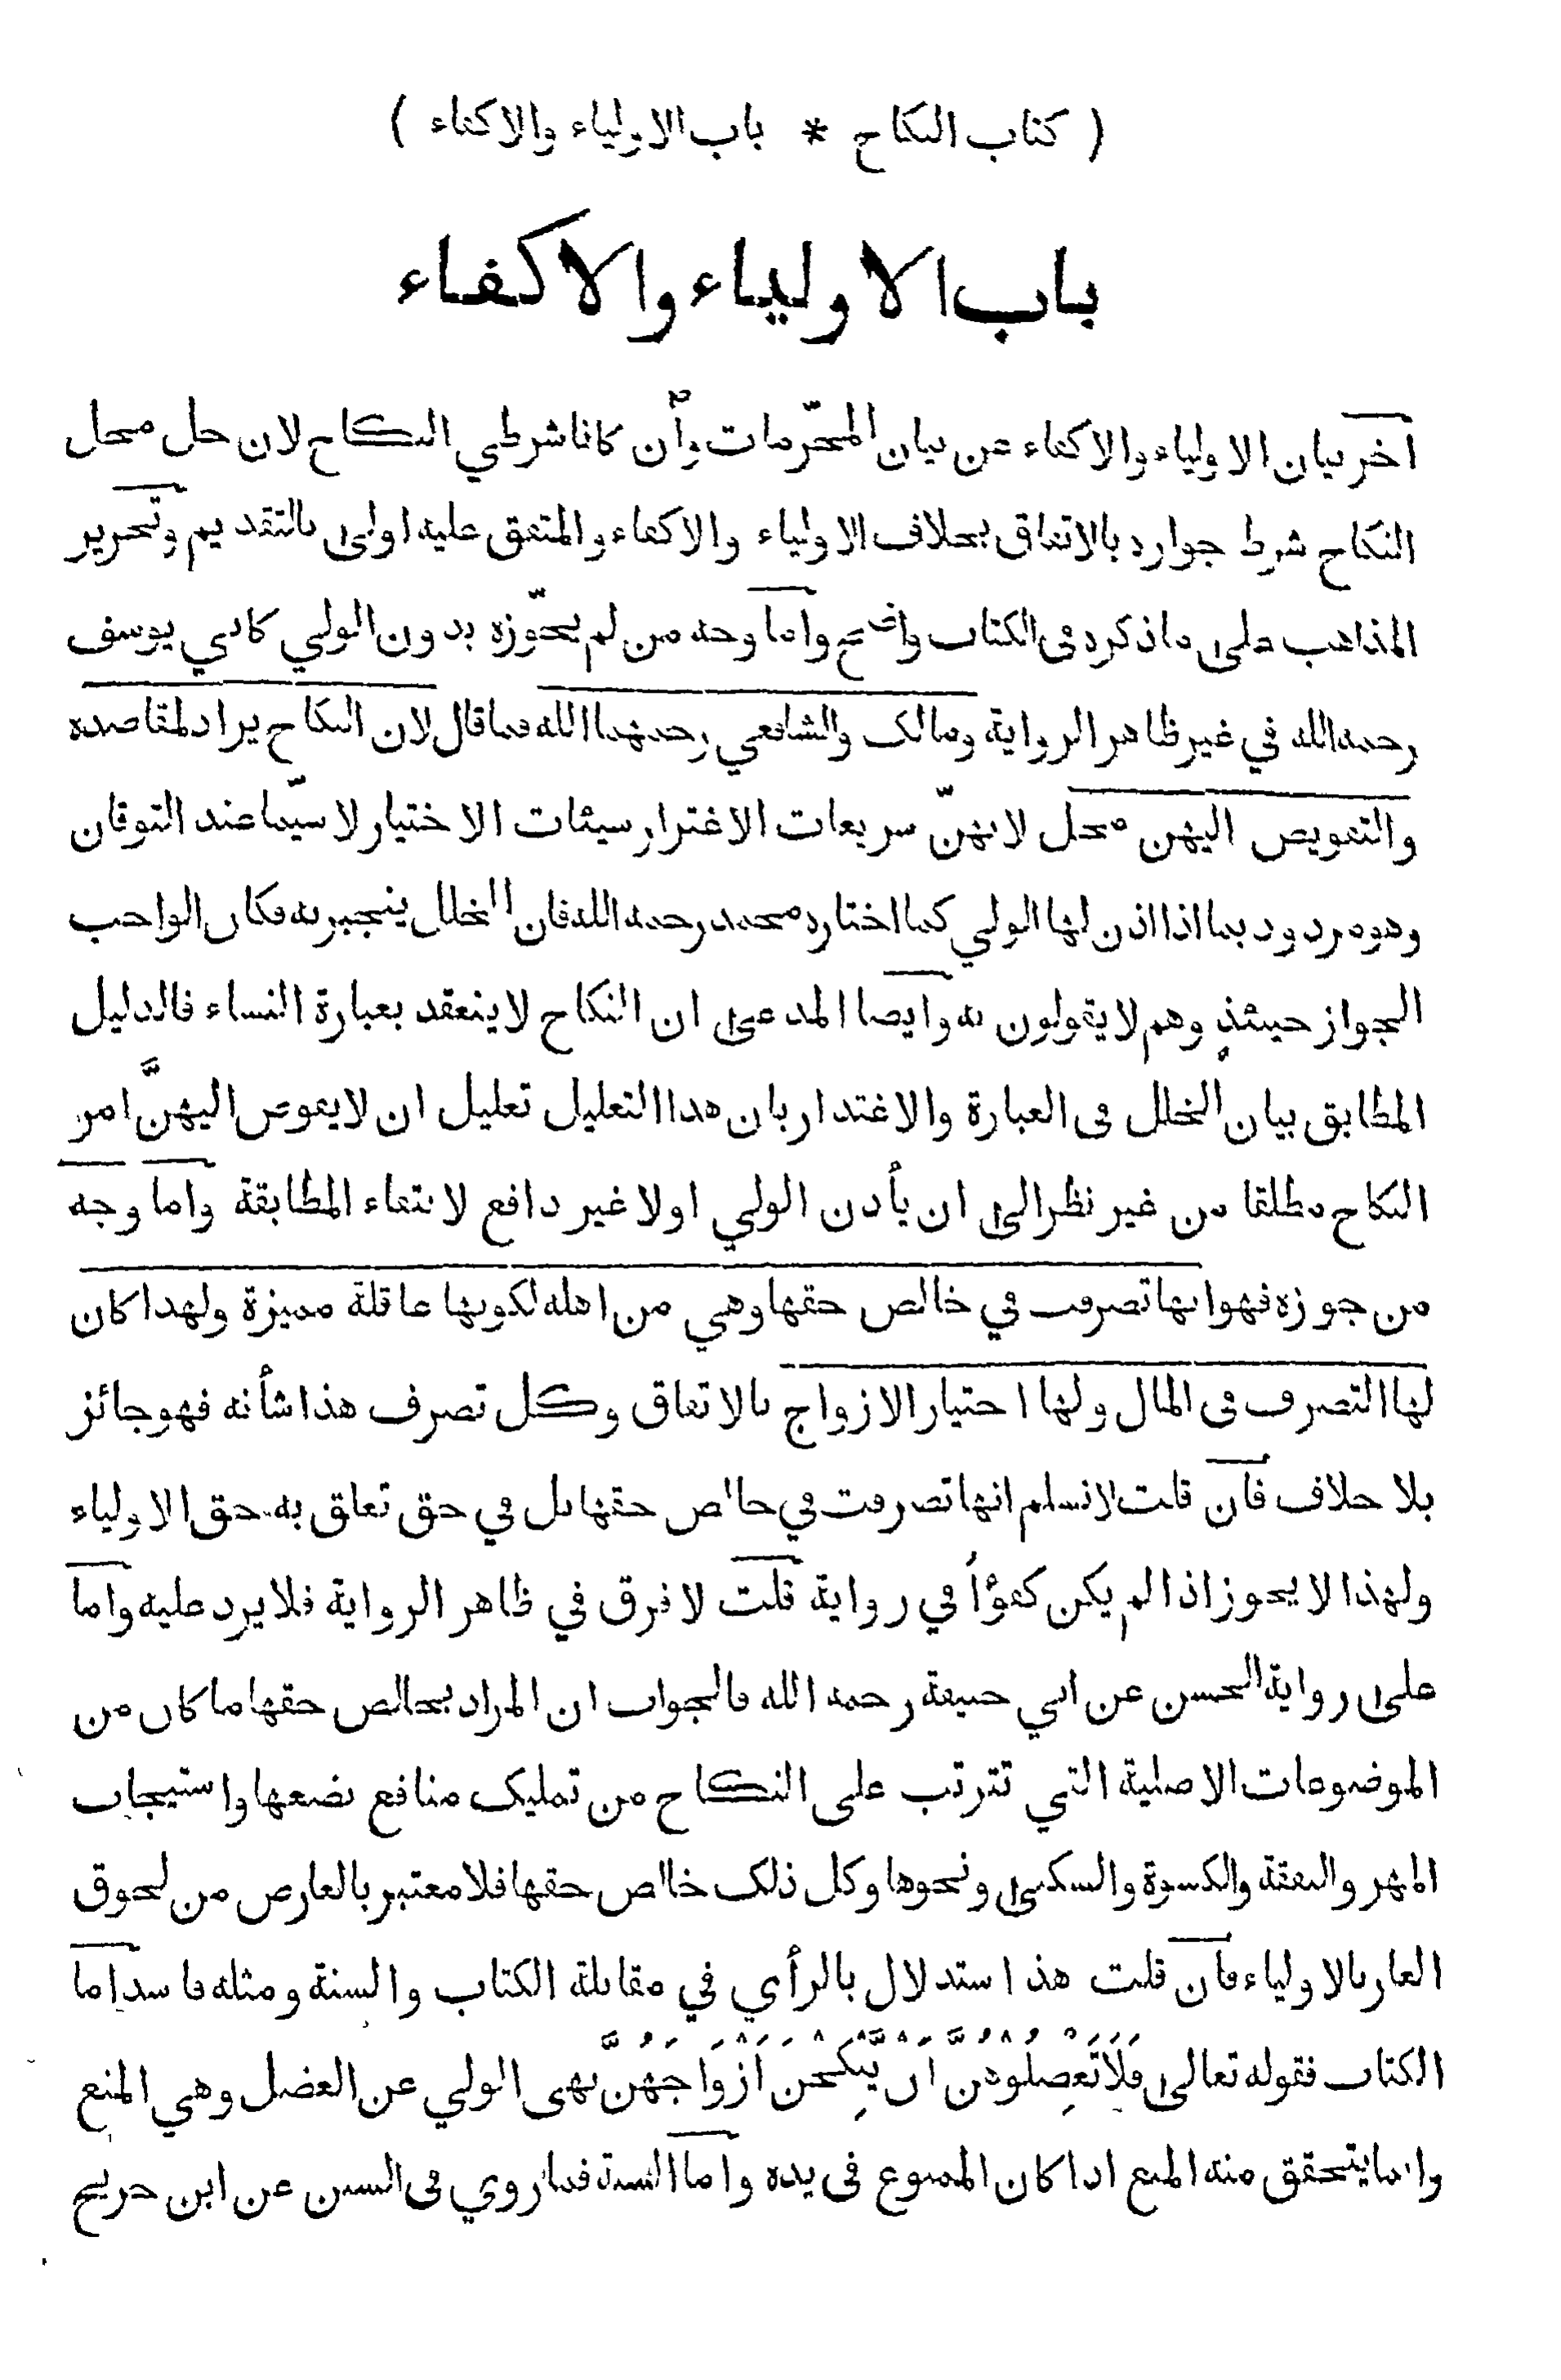 ( كتاب النكاح * باب الاولياء والاكفاء )
باب الاولياء والاكفاء
اخر بيان الاولياء والاكفاء عن بيان المحرّمات وأن كانا شرطي النكاح لان حل محل
النكاح شرط جوازه بالاتفاق بخلاف الاولياء والاكفاء والمتفق عليه اولى بالتقديم وتحرير
المذاهب على ماذكره في الكتاب واضح واما وجه من لم يجوّزه بدون الولي كابي يوسف
رحمه الله في غير ظاهر الرواية ومالك والشافعي رحمهما الله فما قال لان النكاح يراد لمقاصده
والتفويض اليهن محل لانهنّ سريعات الاغترار سيئات الاختيار لا سيّما عند التوقان
وهو مردود بما اذا اذن لها الولي كما اختاره محمد رحمه الله فان الخلل ينجبر به فكان الواجب
الجواز حينئذٍ وهم لا يقولون به وايضا المدعى ان النكاح لا ينعقد بعبارة النساء فالدليل
المطابق بيان الخلل في العبارة والاعتذار بان هذا التعليل تعليل ان لا يفوض اليهنَّ امر
النكاح مطلقا من غير نظر الى ان يأذن الولي اولا غير دافع لانتفاء المطابقة واما وجه
من جوزه فهو انها تصرفت في خالص حقها وهي من اهله لكونها عاقلة مميزة ولهذا كان
لها التصرف في المال ولها اختيار الازواج بالاتفاق وكل تصرف هذا شأنه فهو جائز
بلا خلاف فان قلت لا نسلم انها تصرفت في خالص حقها بل في حق تعلق به حق الاولياء
ولهذا لا يجوز اذا لم يكن كفؤاً في رواية قلت لا فرق في ظاهر الرواية فلا يرد عليه واما
على رواية الحسن عن ابي حنيفة رحمه الله فالجواب ان المراد بخالص حقها ما كان من
الموضوعات الاصلية التي تترتب على النكاح من تمليك منافع بضعها واستيجاب
المهر والنفقة والكسوة والسكنى ونحوها وكل ذلك خالص حقها فلا معتبر بالعارض من لحوق
العار بالاولياء فان قلت هذا استدلال بالرأي في مقابلة الكتاب والسنة ومثله فاسد اما
الكتاب فقوله تعالى فَلَا تَعْضِلُوْهُنَّ اَنْ يَّنْكِحْنَ اَزْوَاجَهُنَّ نهى الولي عن العضل وهي المنع
وانما يتحقق منه المنع اذا كان الممنوع في يده واما السنة فما روي في السنن عن ابن جريج